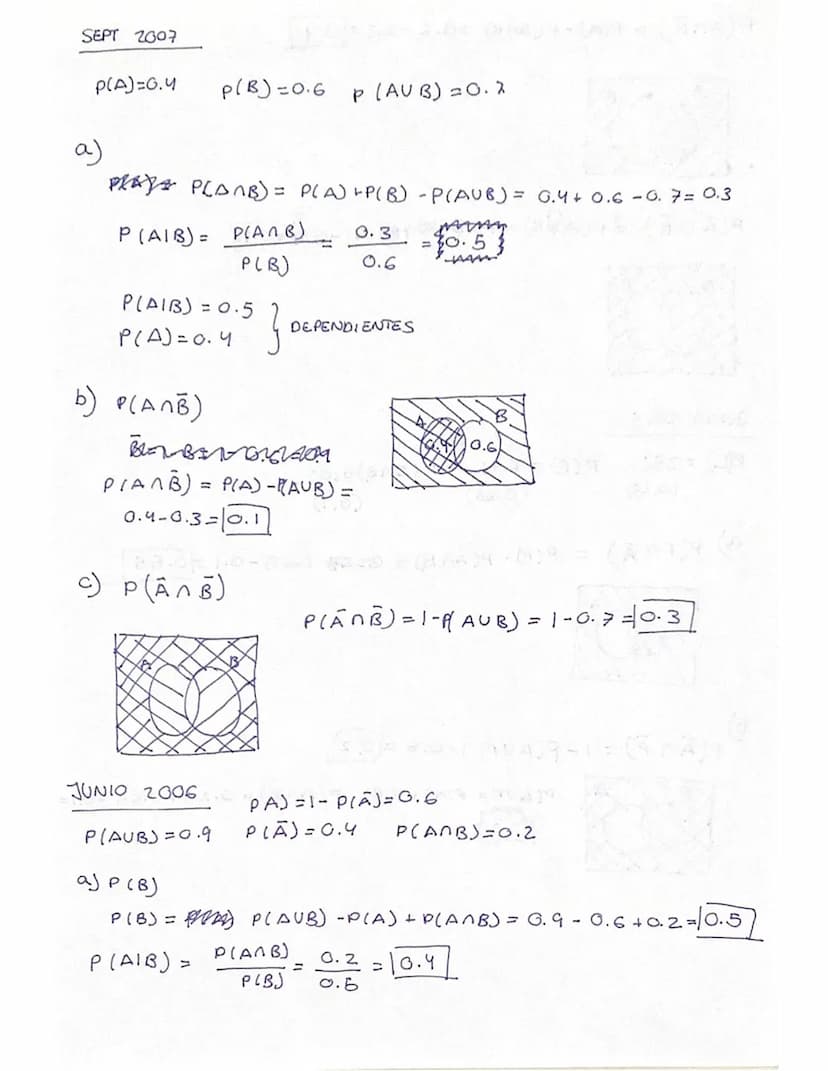 SEPT 2007
P(A)=0.4 P(B)=0.6 P(A∪B)=0.7
a)
P(A∩B) = P(A)+P(B) -P(A∪B) = 0.4+0.6-0.7=0.3
P(A|B) = P(A∩B)/P(B) = 0.3/0.6 = 0.5
P(A|B) = 0.5
P(A)=0.4 } DEPENDIENTES
b) P(A∩B̄)
A B
0.4 0.6
P(A∩B̄) = P(A)-P(A∪B) =
0.4-0.3=0.1
c) P(Ā∩B̄)
P(Ā∩B̄)=1-P(A∪B) = 1-0.7=0.3
A B
JUNIO 2006 P A)=1- P(Ā)=0.6
P(A∪B)=0.9 P(Ā)=0.4 P(A∩B)=0.2
a) P(B)
P(B) = P(A∪B) -P(A)+P(A∩B) = 0.9-0.6+0.2=0.5
P(A|B) = P(A∩B)/P(B) = 0.2/0.5 = 0.4